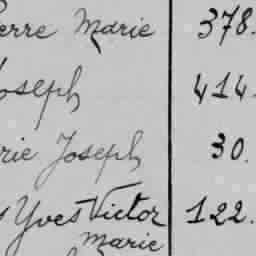 erre Marie 378.
Joseph 414.
rie Joseph 30.
Yves Victor 122.
Marie